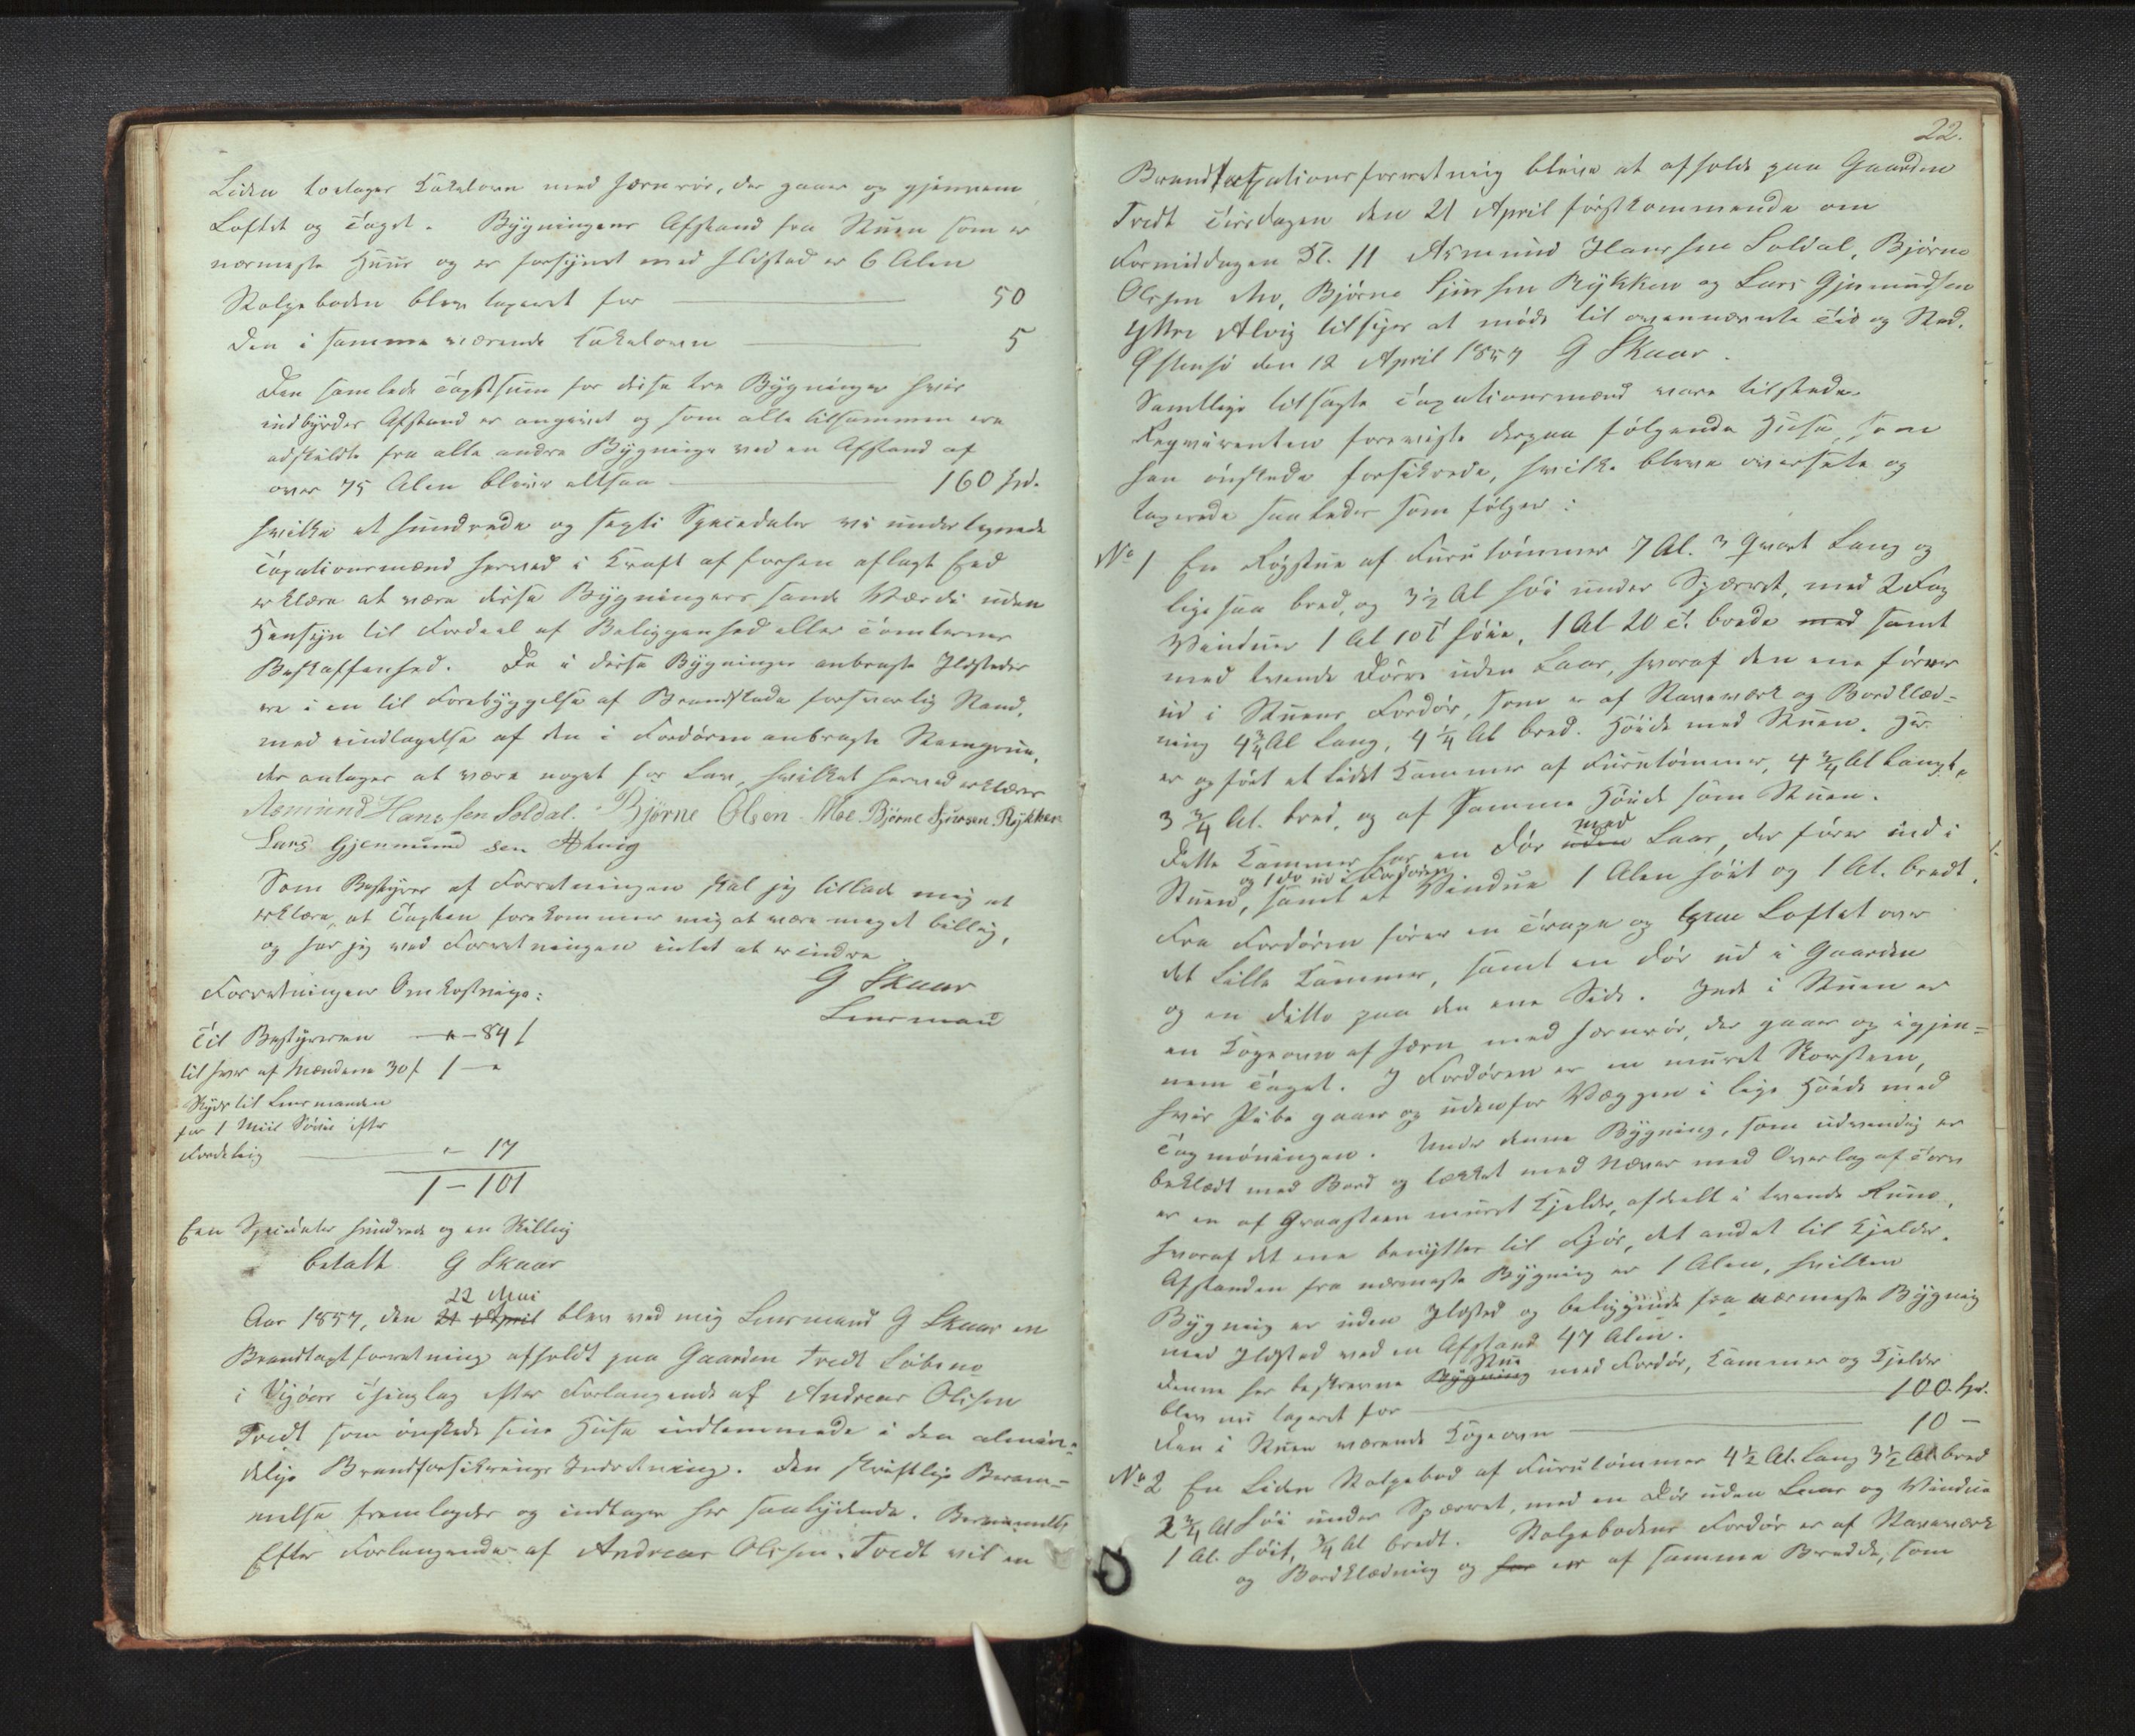 Liden toetages Kakelovn med Jernrör, der gaaer op gjennem
Loftet og Taget. Bygningens Afstand fra Stuen som er
nærmeste Huus og er forsynet med Ildsted er 6 Alen
Stolpeboden blev taxeret for 50
Den i samme værende Kakelovn 5
Den samlede Taxtsum for disse tre Bygninger hvis
indbyrdes Afstand er angivet og som alle tilsammen ere
adskildte fra alle andre Bygninger ved en Afstand af
over 75 Alen bliver altsaa 160 Spd.
hvilke et hundrede og sexti Speciedaler vi undertegnede
Taxationsmænd herved i Kraft af forhen aflagt Eed
erklære at være disse Bygningers sande Værdi uden
Hensyn til Fordeel af Beliggenhed eller Tomternes
Beskaffenhed. De i disse Bygninger anbragte Ildsteder
ere i en til Forebyggelse af Brandskade forsvarlig Stand,
med undtagelse af den i Fordören anbragte
der antages at være noget for lav, hvilket herved erklæres
Asmund Hanssen Soldal. Bjørne Olsen Moe. Bjørne Sjursen Røkken
Lars Gjermund sen Alvig
Som Bestyrer af Forretningen skal jeg tillade mig at
erklære, at Taxten forekommer mig at være meget billig,
og har jeg ved Forretningen intet at erindre
G Skaar
Lensmand
Forretningens Omkostninger:
Til Bestyreren " - 84 ß
til hver af Mændene 30 ß 1 - "
Skyds til Lensmanden
for 1 Miil Söveien efter
Fordeling " - 17
1 - 101
Een Speciedaler hundrede og en Skilling
betalt G Skaar
22 Mai
Aar 1857, den 21 April blev ved mig Lensmand G Skaar en
Brandtaxtforretning afholdt paa Gaarden Tvedt Löbeno
i Vigöers Thinglag efter Forlangende af Andreas Olssen
Tvedt som önskede sine Huse indlemmede i den almin-
delige Brandforsikrings Indretning. Den skriftlige Beram-
melse fremlagdes og indtages her saalydende. Berammelse
Efter Forlangende af Andreas Olssen Tvedt vil en
22.
Brandtaxationsforretning blive at afholde paa Gaarden
Tvedt Tirsdagen den 21 April förstkommende om
Formiddagen Kl. 11 Asmund Hanssen Soldal, Bjørne
Olssen Mo, Bjørne Sjurssen Rykken og Lars Gjermundsen
Yttre Alvig tilsiges at møde til ovennævnte Tid og Sted.
Østensö den 12 April 1857 G Skaar.
Samtlige tilsagte Taxationsmænd vare tilstede.
Reqvirenten foreviste derpaa fölgende Huse, som
han önskede forsikrede, hvilke bleve overseete og
taxerede saaledes som fölger:
No 1 En Rögstue af Furutömmer 7 Al. 3 Qvart Lang og
lige saa bred, og 3 1/2 Al höi under Sperret, med 2 Fag
Vinduer 1 Al 10 T höie, 1 Al 20 T. brede med samt
med tvende Dörre uden Laas, hvoraf den ene förer
ud i Stuens Fordör, som er af Staveværk og Bordklæd-
ning 4 3/4 Al lang, 4 1/4 Al bred. Höide med Stuen. Her
er opfört et lidet Kammer af Furutömmer, 4 3/4 Al langt,
3 3/4 Al. bred, og af samme Höide som Stuen.
med
Dette Kammer har en Dör uden Laas, der förer ind i
og 1 do ud i Fordören
Stuen, samt et Vindue 1 Alen höit og 1 Al. bredt.
Fra Fordören förer en Trappe op paa Loftet over
det Lille Kammer, samt en Dör ud i Gaarden
og en ditto paa den ene Side. Inde i Stuen er
en Kogeovn af Jern med Jernrör, der gaaer op igjen-
nem Taget. I Fordören er en muret Skorsteen,
hvis Pibe gaaer op udenfor Væggen i lige Höide med
Tagmöningen. Under denne Bygning, som udvendig er
beklædt med Bord og tækket med Næver med Overlag af Torv
er en af Graasteen muret Kjelder, afdeelt i tvende Rum,
hvoraf det ene benyttes til Fjös, det andet til Kjelder.
Afstanden fra nærmeste Bygning er 1 Alen, hvilken
Bygning er uden Ildsted og beliggende fra nærmeste Bygning
med Ildsted ved en Afstand 47 Alen.
Stue
Denne her beskrevne Bygning med Fordör, Kammer og Kjelder
blev nu taxeret for 100 Spd.
Den i Stuen værende Kogeovn 10 -
No 2 En Liden Stolpebod af Furutömmer 4 1/2 Al. lang 3 1/2 Al. bred
2 3/4 Al höi under Sperret, med en Dör uden Laas og Vindue
1 Al. höit, 3/4 Al bredt. Stolpebodens Fordör er af Staveværk
og Bordklædning og har er af samme Bredde, som